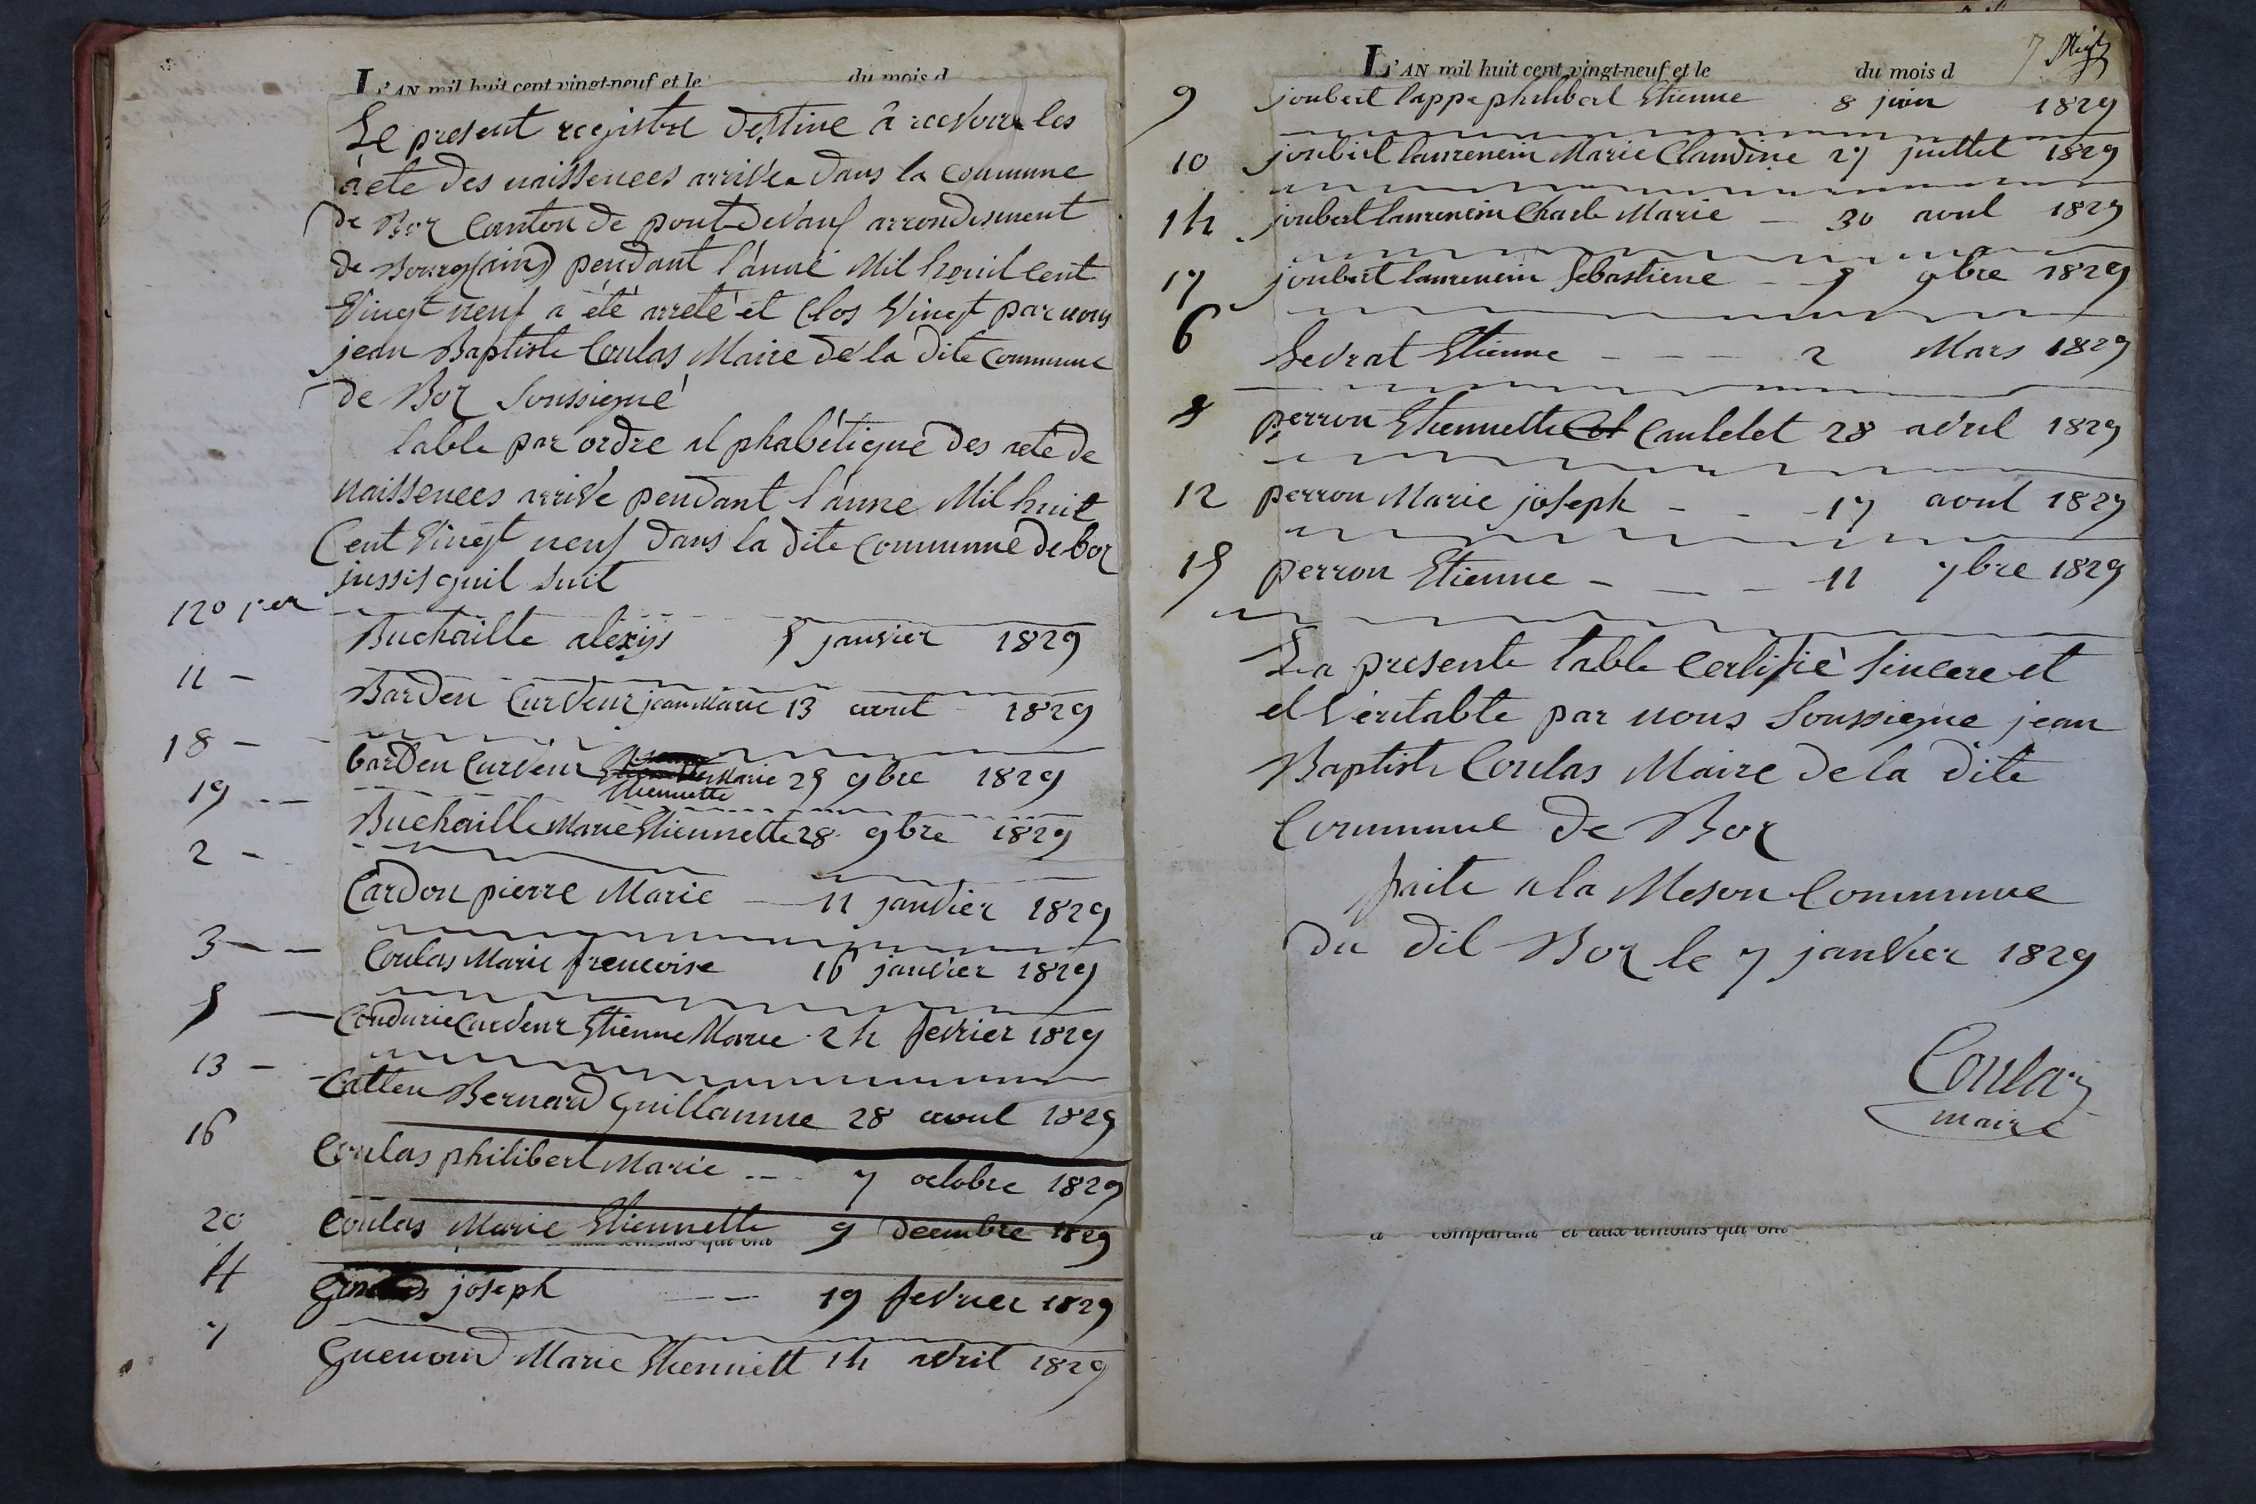 L'AN mil huit cent vingt-neuf et le du mois d
Le present registre destine â recevoir les
àcte des naissences arrivée dans la commune
de Boz Canton de pont-devaux arrondisement
de Bourg (ain) pendant l'ánné Mil heuil Cent
Vingt neuf a été arreté et Clos Vingt par nous
jean Baptiste Coulas Maire de la dite commune
de Boz Soussigné
table par ordre alphabétique des acte de
naissences arrivé pendant l'ánne Mil huit
Cent Vingt neuf dans la dite Commune de boz
jussis quil suit
120 1er Buchaille aléxis 5 janvier 1829
11 - Barden Curveur jean Marie 13 aout 1829
18 - barden Curveur Marie 25 9bre 1829
Etiennette
19 - Buchaille Marie Etiennette 28 9bre 1829
2 - Cardon pierre Marie 11 janvier 1829
3 - Coulas Marie frencoise 16 janvier 1829
5 - Condurie Curdeur Etienne Marie 24 fevrier 1829
13 - Catteu Bernard guillaume 28 aout 1829
16 Coulas philibert Marie 7 octobre 1829
20 Coulas Marie Etiennette 9 decembre 1829
4 joseph 19 fevrier 1829
7 guenoud Marie Etiennett 14 avril 1829
7
L'AN mil huit cent vingt-neuf et le du mois d
9 joubert lappe philibert Etienne 8 juin 1829
10 joubert laurencin Marie Claudine 27 juillet 1829
14 joubert laurencin Charle Marie - 30 aout 1829
17 joubert laurencin Sebastiene - 9 9bre 1829
6 Levrat Etienne - - - 2 Mars 1829
8 perron Etiennette Col Caulelet 28 avril 1829
12 perron Marie joseph - - 17 aout 1829
15 perron Etienne - - - 11 7bre 1829
La presente table Certifié Sincere et
et Véritable par nous Soussigne jean
Baptiste Coulas Maire de la dite
Commune de Boz
faite a la Meson Commune
du dit Boz le 7 janvier 1829
Coulas
maire
a comparant et aux témoins qui ont